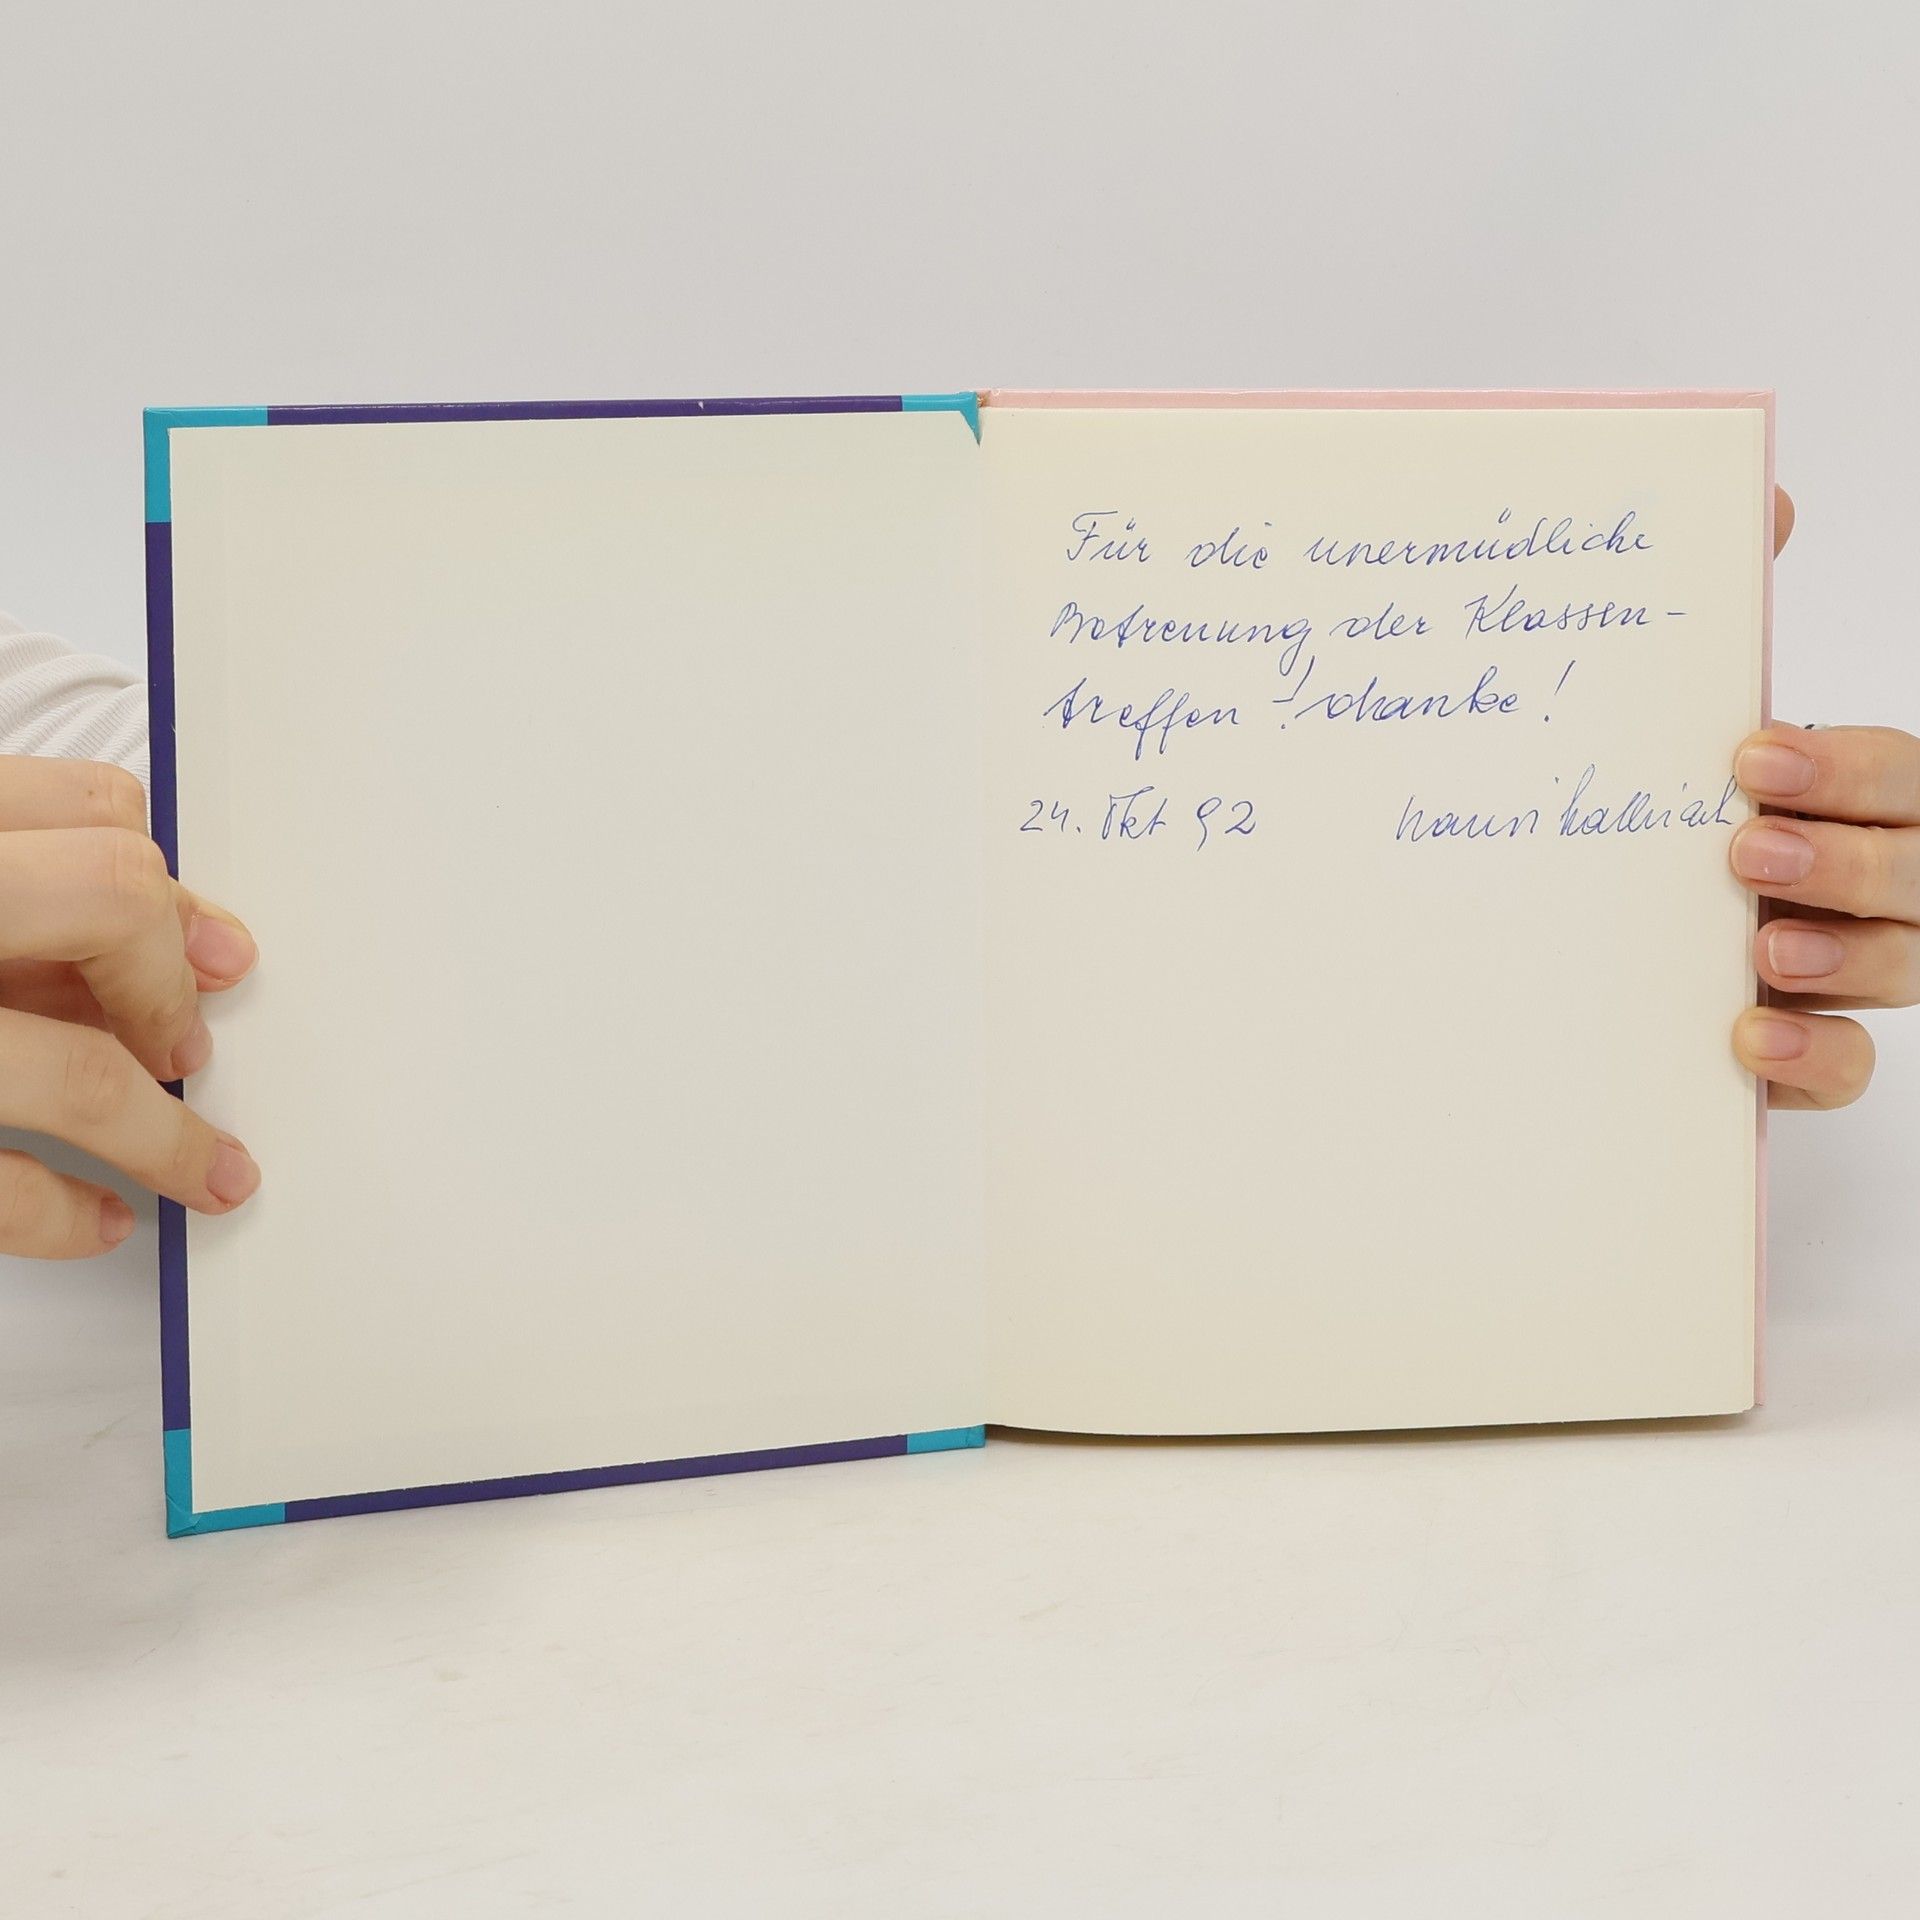 Für die unermüdliche
Betreuung der Klassen-
treffen ! danke !
24. Okt 92